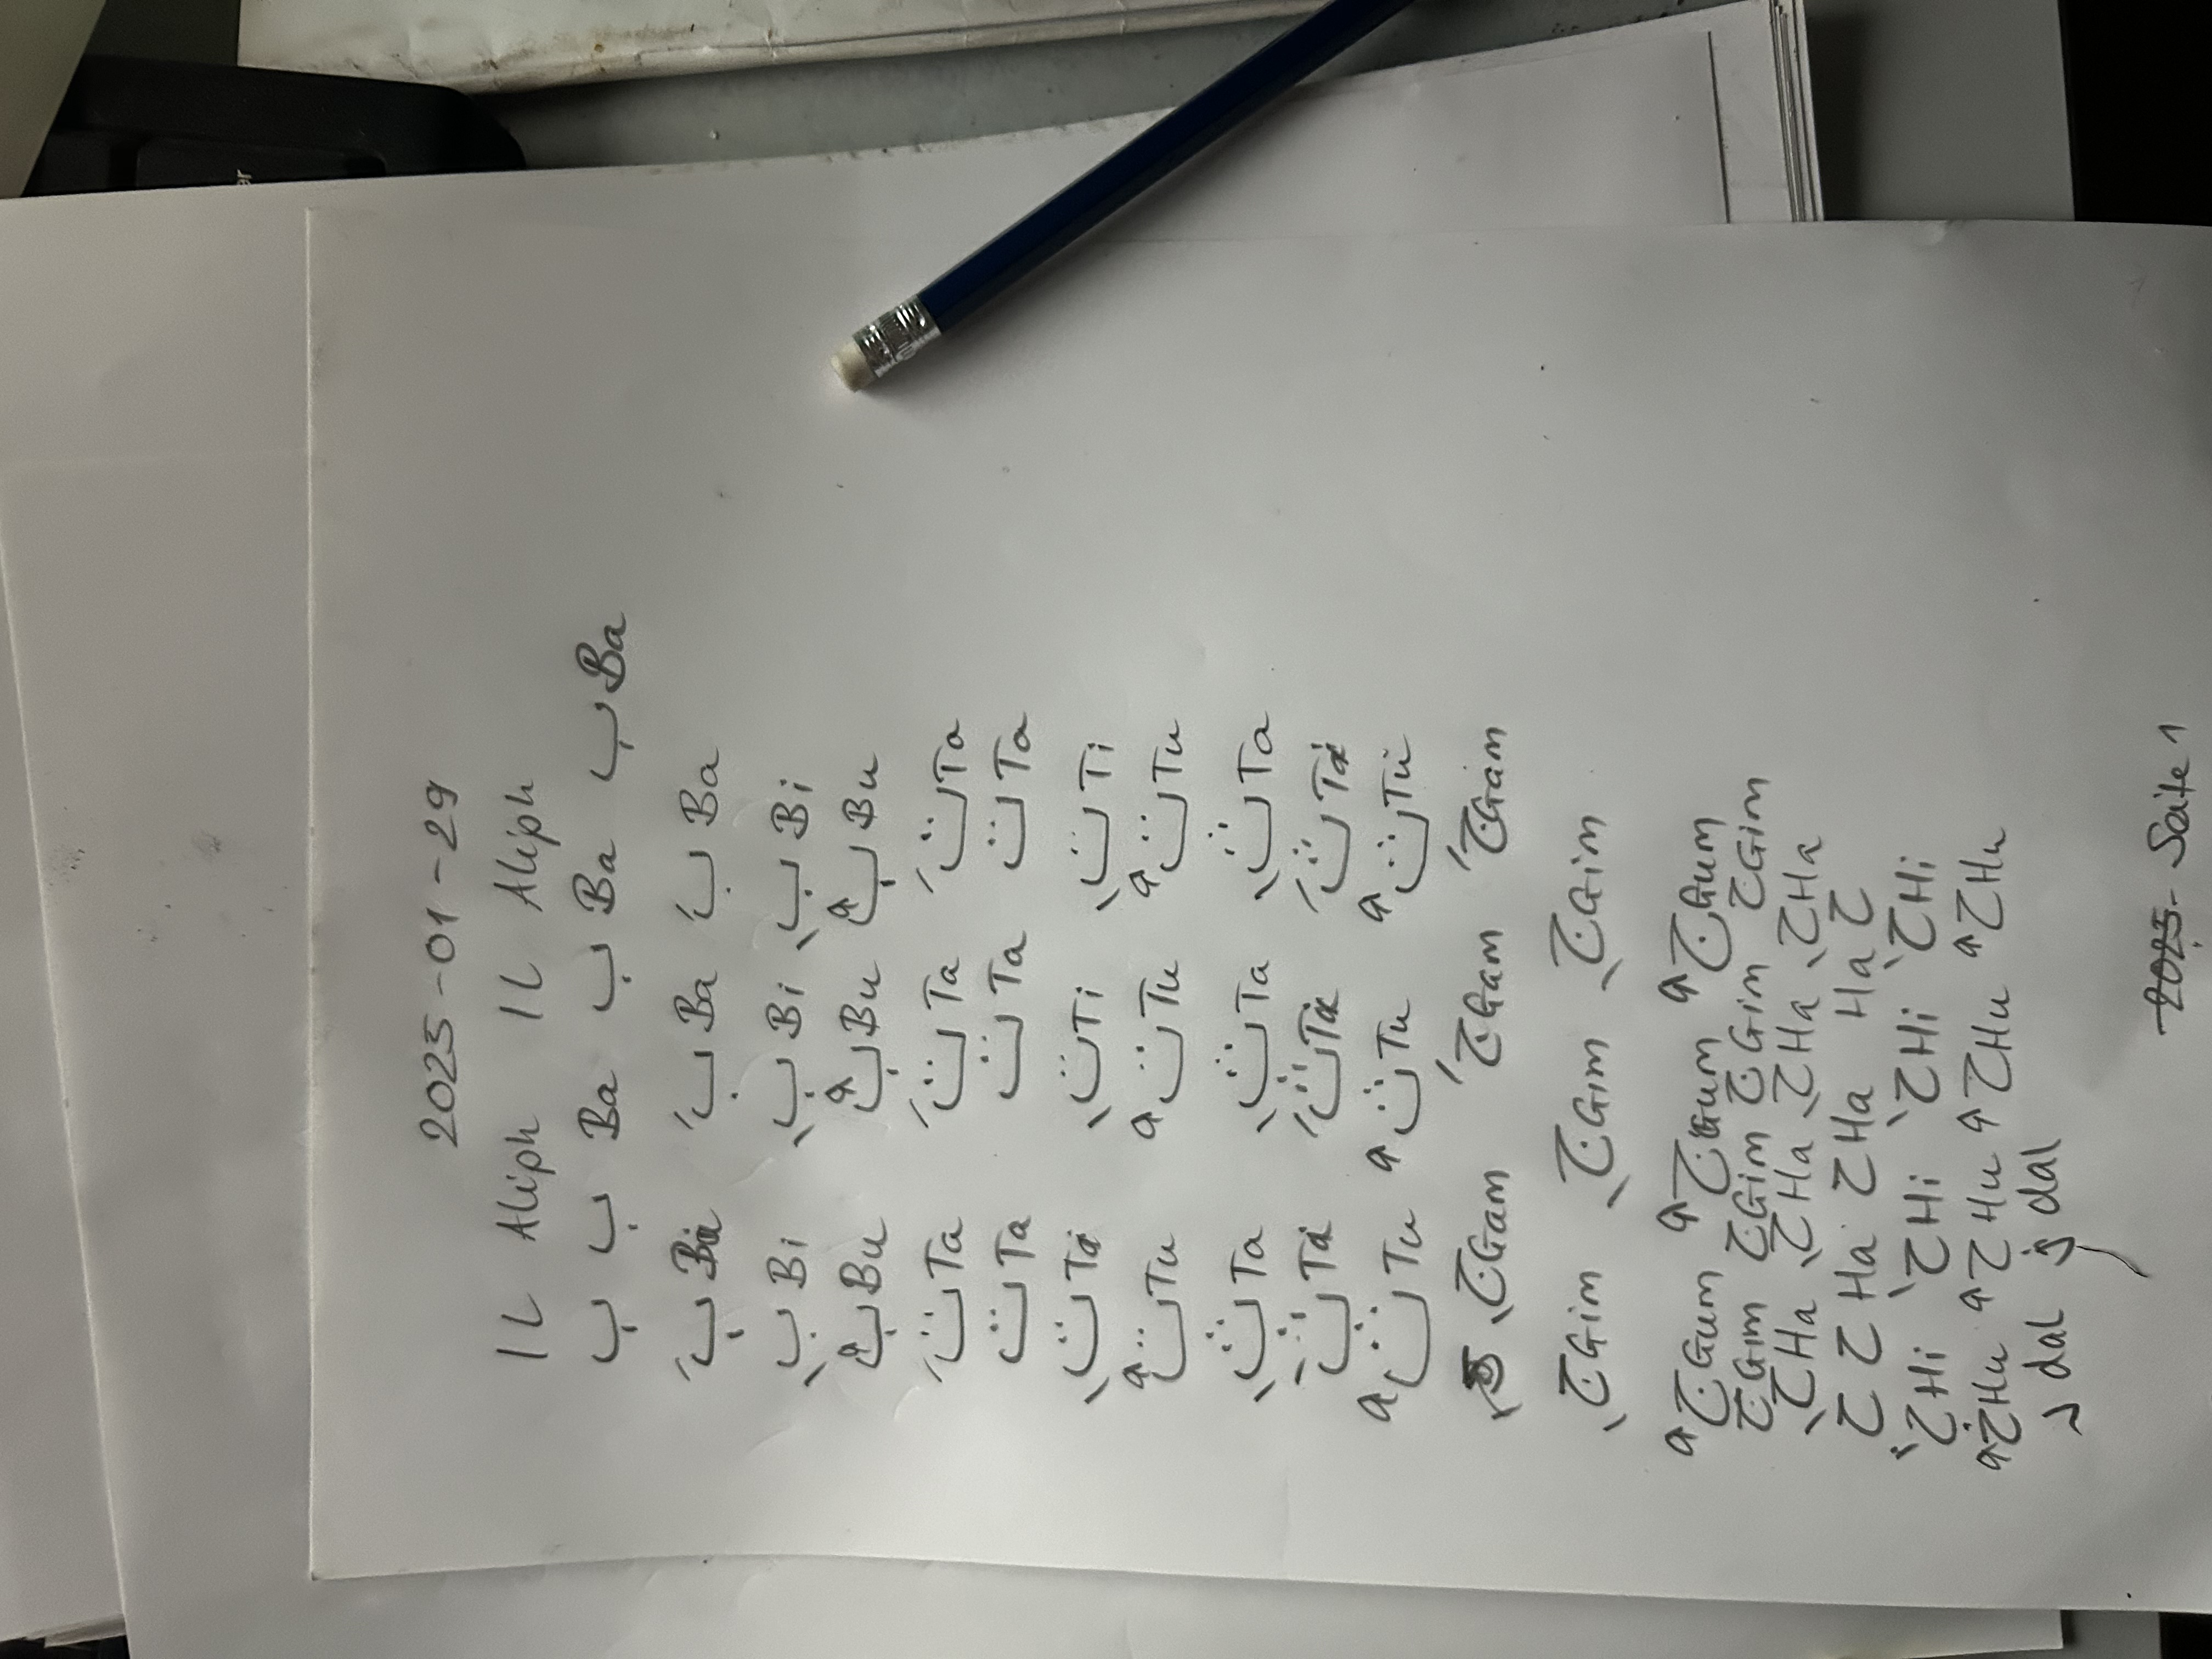 2025-01-29
ا ل Aliph ا ل Aliph
ب ب Ba ب Ba ب Ba
بَ Ba بَ Ba بَ Ba
بِ Bi بِ Bi بِ Bi
بُ Bu بُ Bu بُ Bu
تَ Ta تَ Ta تَ Ta
ت Ta ت Ta ت Ta
تِ Ti تِ Ti تِ Ti
تُ Tu تُ Tu تُ Tu
ثِ Ta ثِ Ta ثِ Ta
ثَ Ta ثَ Ta ثَ Ta
ثُ Tu ثُ Tu ثُ Tu
جَ Gam جَ Gam جَ Gam
جِ Gim جِ Gim جِ Gim
جُ Gum جُ Gum جُ Gum
ج Gim ج Gim ج Gim ح Gim
حَ Ha حَ Ha حَ Ha حَ Ha
ح ح Ha ح Ha Ha ح
حِ Hi حِ Hi حِ Hi حِ Hi
حُ Hu حُ Hu حُ Hu حُ Hu
د dal ذ dal
2025- Seite 1
er